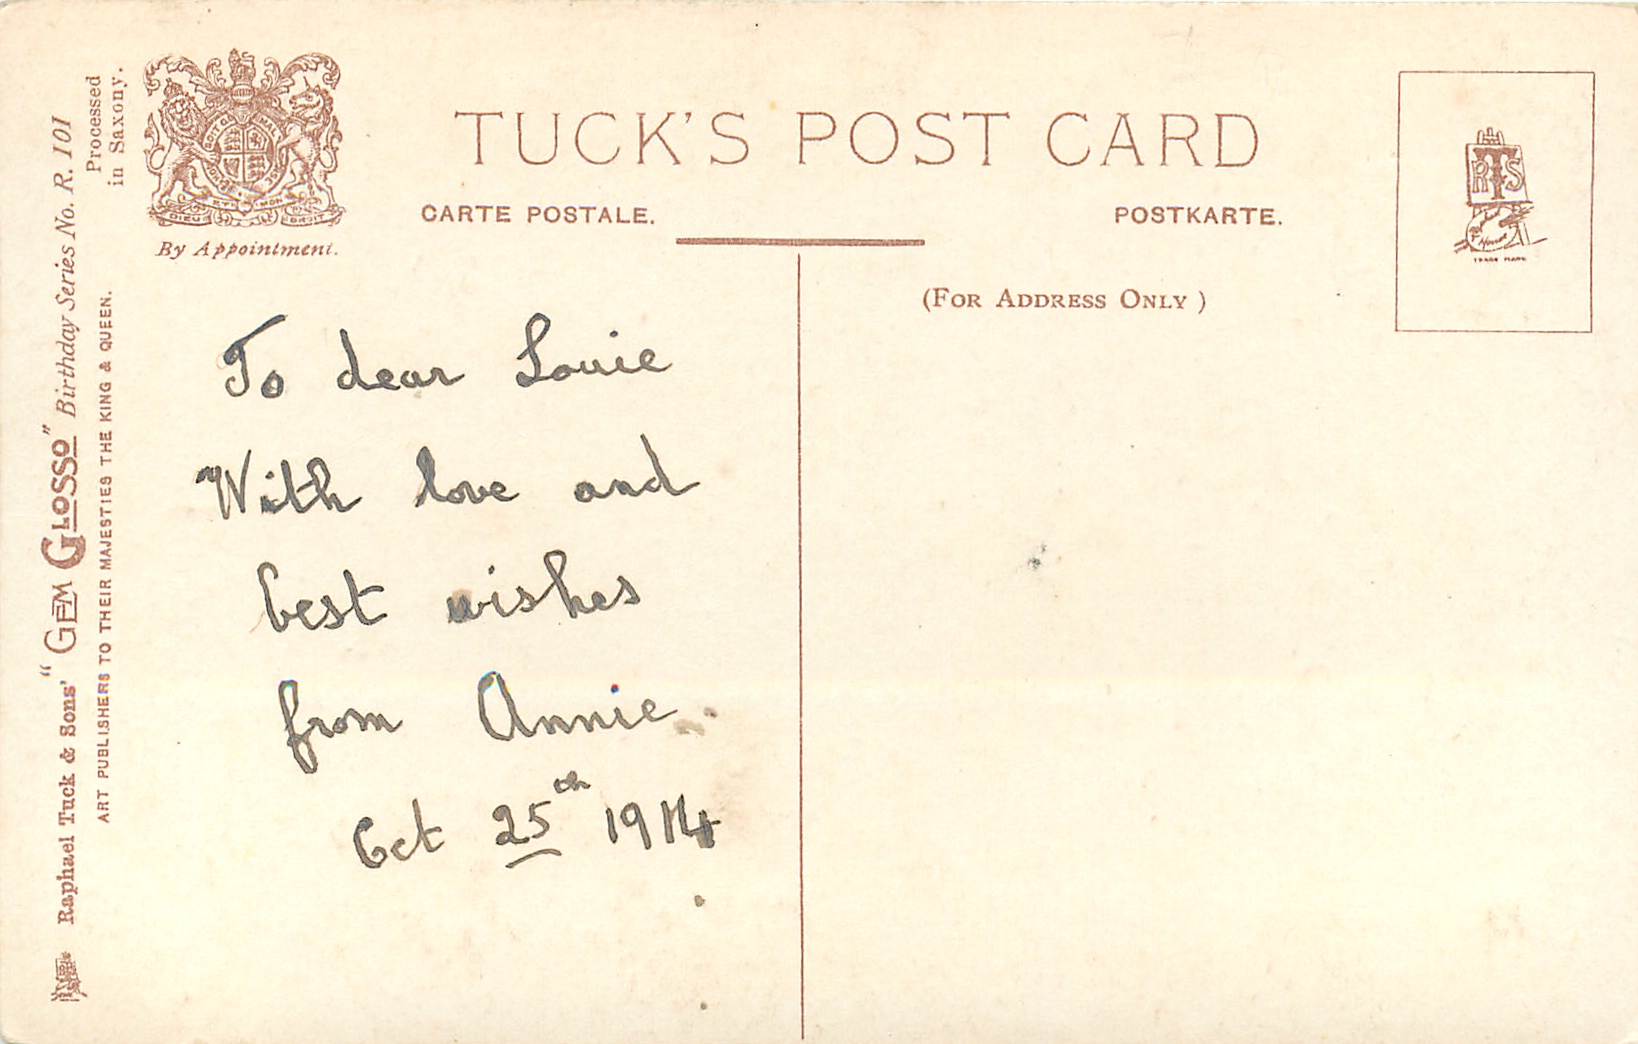 TUCK'S POST CARD
CARTE POSTALE.
POSTKARTE.
(FOR ADDRESS ONLY)
By Appointment.
DIEU ET MON DROIT
RTS
TRADE MARK
Processed
in Saxony.
Raphael Tuck & Sons' "GEM GLOSSO" Birthday Series No. R. 101
ART PUBLISHERS TO THEIR MAJESTIES THE KING & QUEEN.
To dear Louie
With love and
best wishes
from Annie
Oct 25th 1914